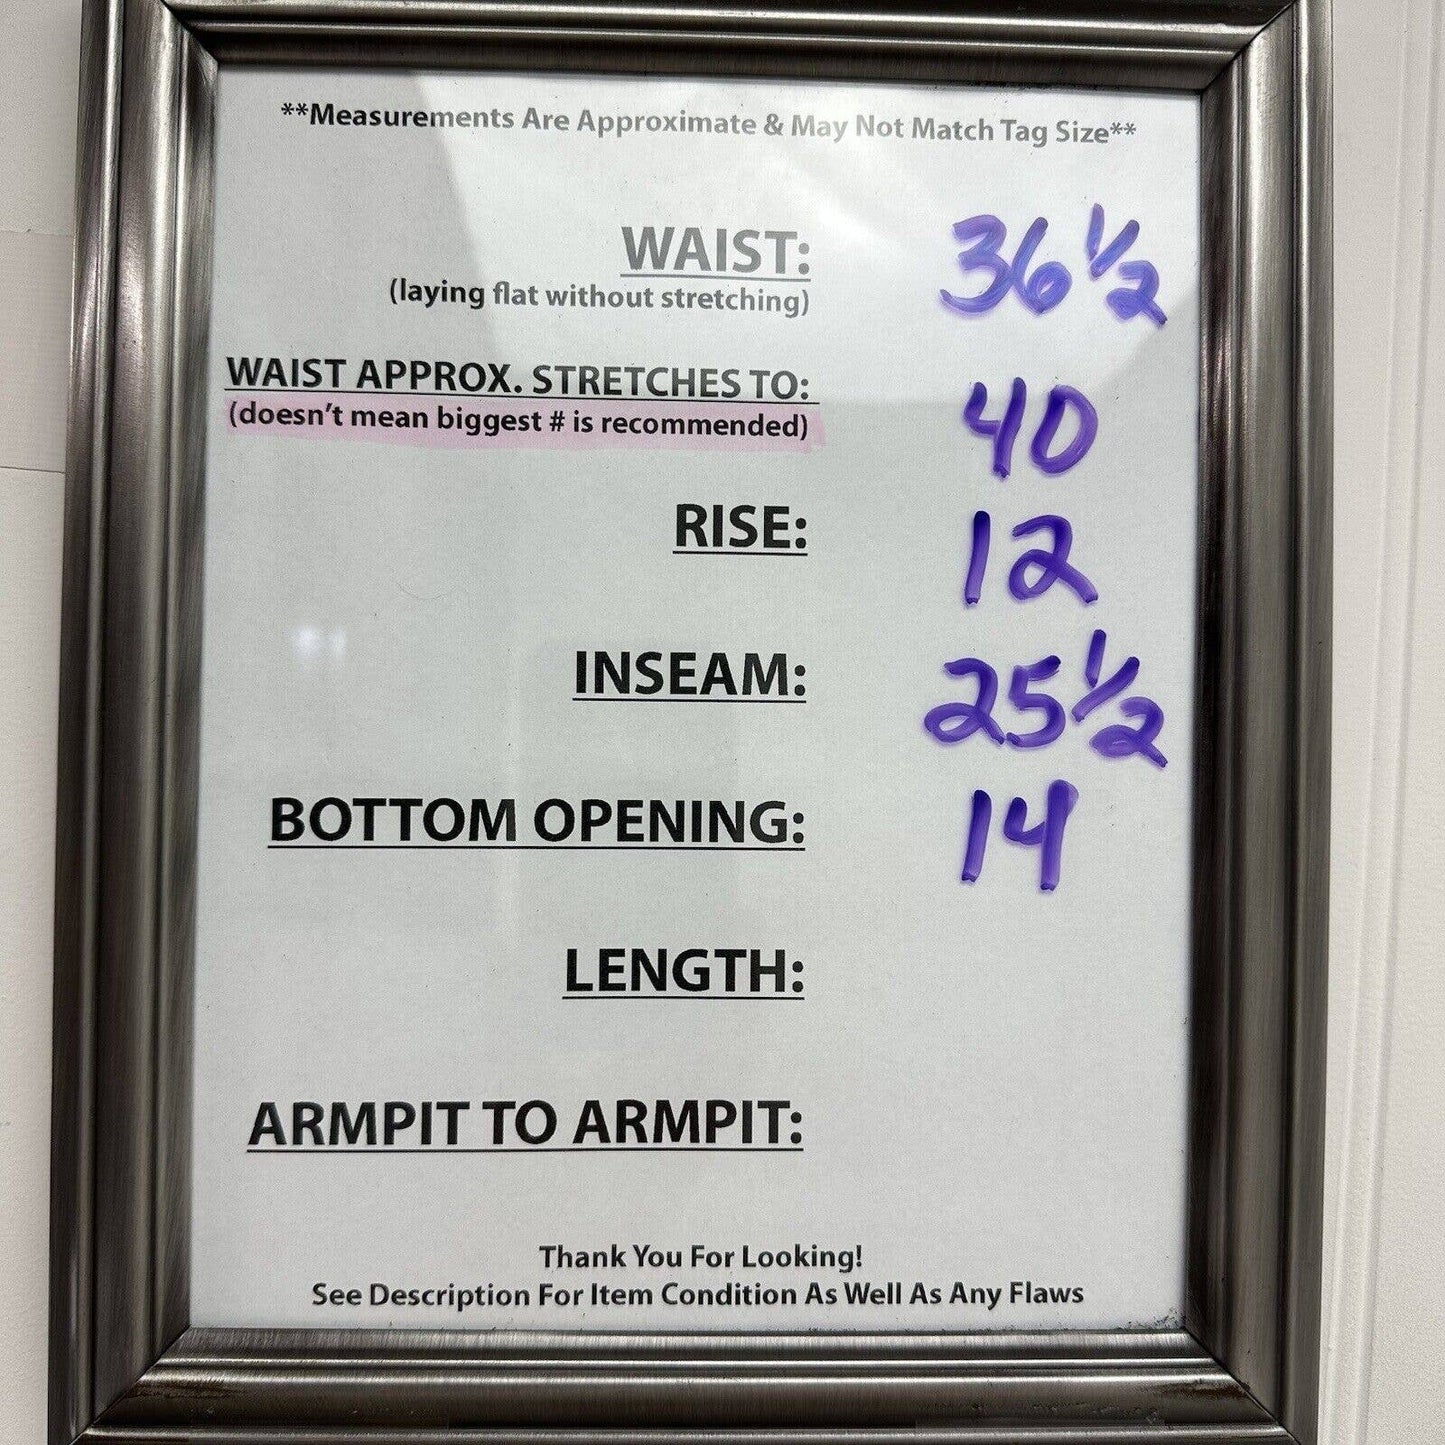 **Measurements Are Approximate & May Not Match Tag Size**
WAIST: 36 1/2
(laying flat without stretching)
WAIST APPROX. STRETCHES TO: 40
(doesn't mean biggest # is recommended)
RISE: 12
INSEAM: 25 1/2
BOTTOM OPENING: 14
LENGTH:
ARMPIT TO ARMPIT:
Thank You For Looking!
See Description For Item Condition As Well As Any Flaws